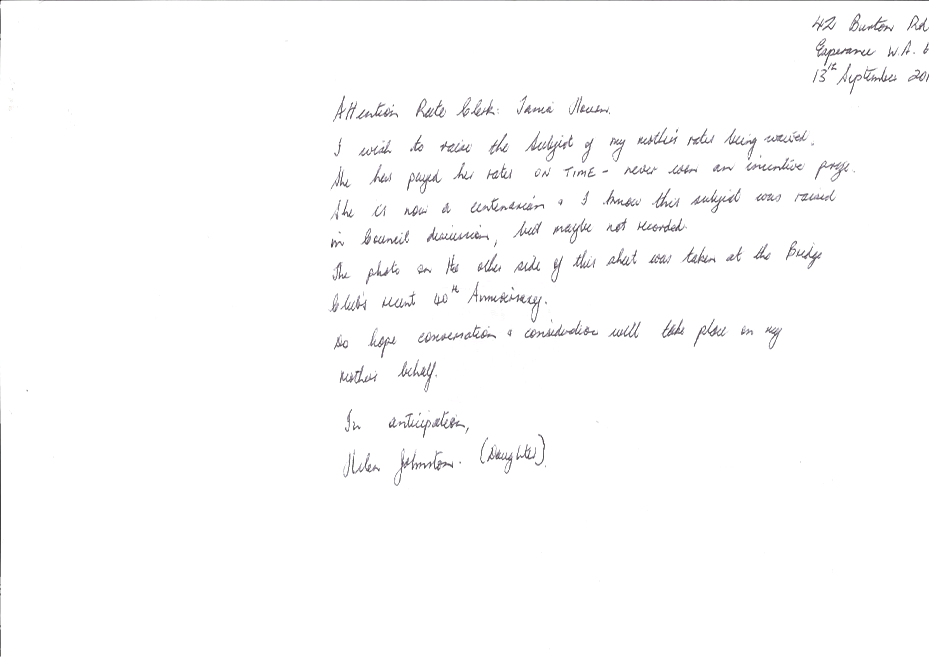 42 Burton Rd
Esperance W.A. 6
13th September 201
Attention Rate Clerk: Tania
I wish to raise the subject of my mother's rates being waived.
She has payed her rates ON TIME - never won an incentive prize.
She is now a centenarian & I know this subject was raised
in Council discussion, but maybe not recorded.
The photo on the other side of this sheet was taken at the Bridge
Club's recent 40th Anniversary.
Do hope conversation & consideration will take place on my
mother's behalf.
In anticipation,
Helen Johnston. (Daughter)